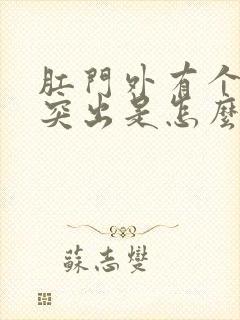 肛門外有个
突出是怎麼
蘇志燮